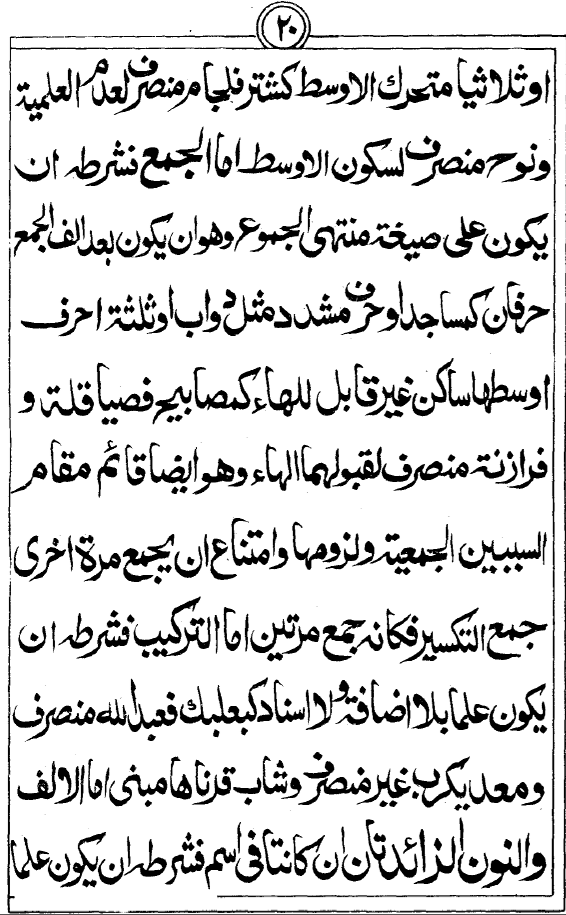 ٢٠
او ثلاثيا متحرك الاوسط كشتر فلجام منصرف لعدم العلمية
ونوح منصرف لسكون الاوسط اما الجمع فشرطه ان
يكون على صيغة منتهى الجموع وهو ان يكون بعد الف الجمع
حرفان كمساجد او حرف مشدد مثل دواب او ثلثة احرف
اوسطها ساكن غير قابل للهاء كمصابيح فصياقلة و
فرازنة منصرف لقبولهما الهاء وهو ايضا قائم مقام
السببين الجمعية ولزومها وامتناع ان يجمع مرة اخرى
جمع التكسير فكانه جمع مرتين اما التركيب فشرطه ان
يكون علما بلا اضافة ولا اسناد كبعلبك فعبد الله منصرف
ومعديكرب غير منصرف وشاب قرناها مبنى اما الالف
والنون الزائدتان ان كانتا فى اسم فشرطه ان يكون علما